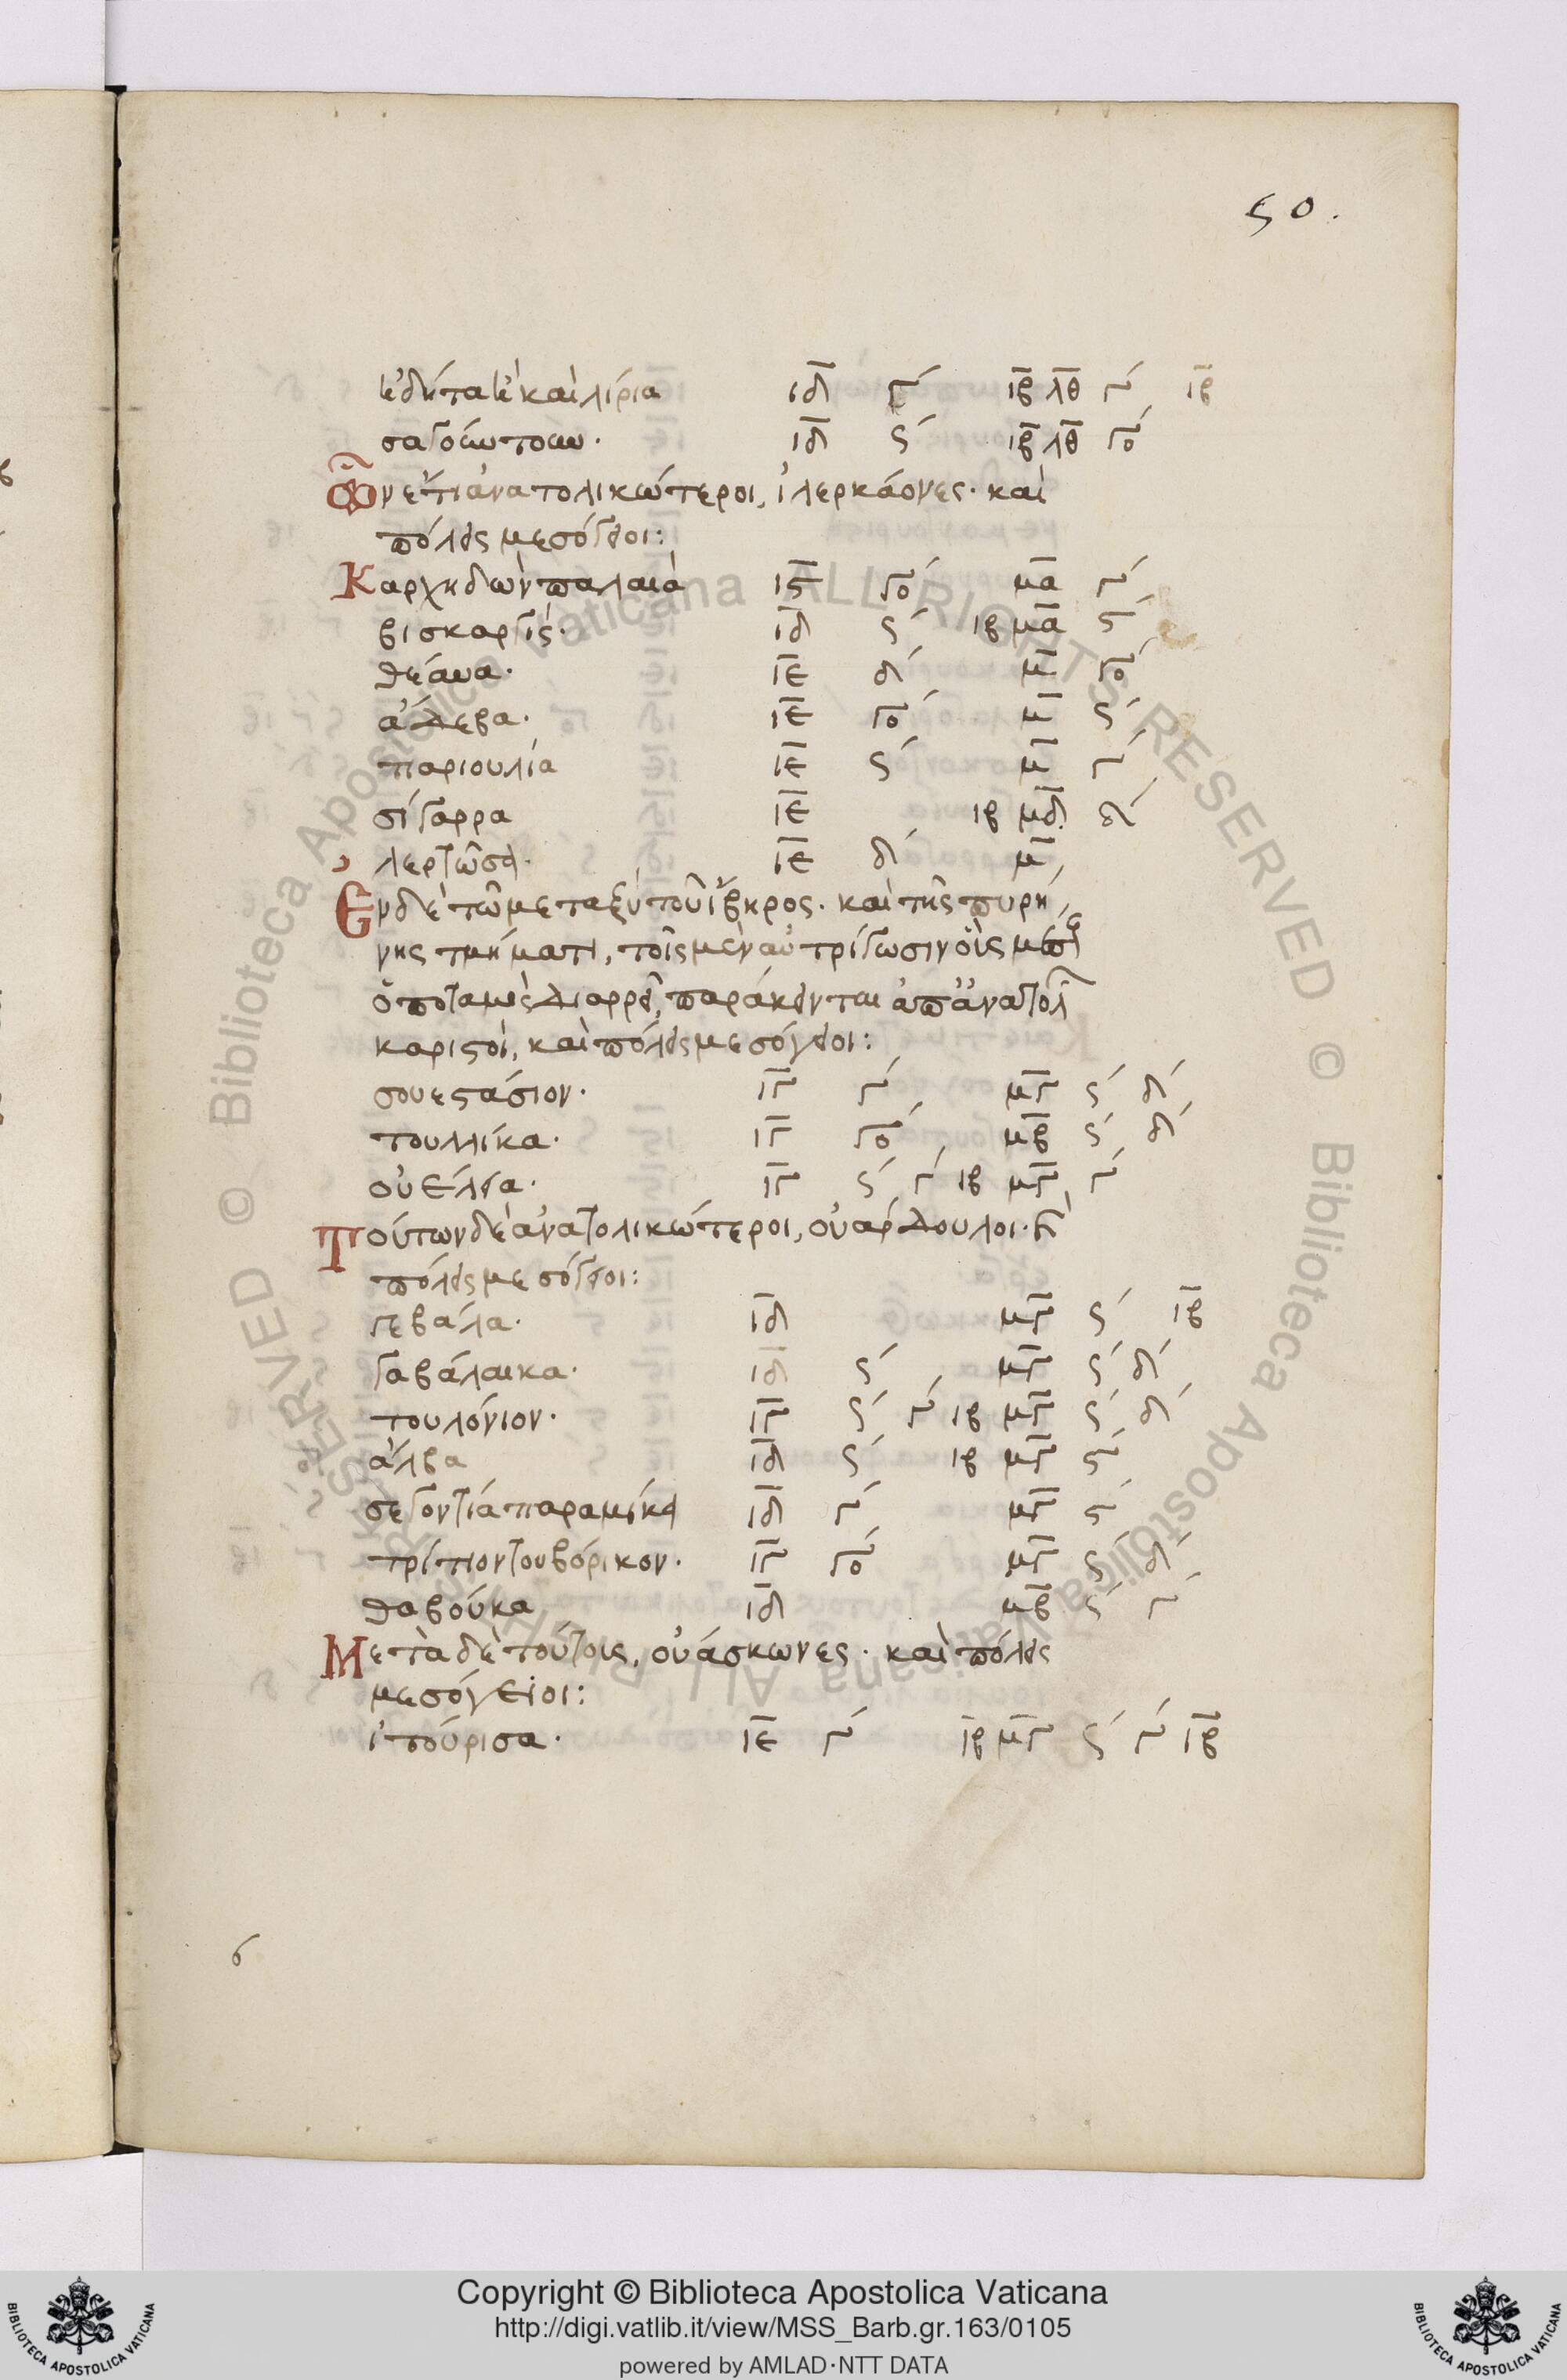 50.
ἐδήτα ἐ καὶ λίρια ιδ γ ιβ λθ γ ιβ
σαγόωτοω· ιδ ς ιβ λθ γο
ὧν ἔτι ἀνατολικώτεροι, ἰλερκάονες· καὶ
πόλεις μεσόγειοι:
Καρχηδὼν παλαιὰ ις γο μα γ
βισκαργὶς· ιδ ς ιβ μα ς
θέαυα· ιε δ μ γο
ἄδεβα· ιε γο μ ς
παριουλία ιε ς μ γ
σίγαρρα ιε ιβ μδ δ
λερτῶσα· ιε δ μ
Ἐν δὲ τῶ μεταξὺ τοῦ ἴβηρος· καὶ τῆς πυρή
νης τμήματι, τοῖς μὲν αὐτρίγωσιν οἷς
ὁ ποταμὸς διαρρεῖ, παράκεινται ἀπ ἀνατολ
καριστοὶ, καὶ πόλεις μεσόγειοι:
σουεστάσιον· ιγ γ μγ ς δ
τουλλίκα· ιγ γο μβ ς δ
οὐέλεια· ιγ ς γ ιβ μγ γ
Τούτων δὲ ἀνατολικώτεροι, οὐάρδουλοι· κὶ
πόλεις μεσόγειοι:
γεβάλα· ιδ μγ ς ιβ
γαβάλαικα· ιδ ς μγ ς δ
τουλόνιον· ιγ ς γ ιβ μγ ς δ
ἄλβα ιδ ς ιβ μγ ς
σεγοντία παραμίκα ιδ γ μγ ς
τρίτιον τουβόρικον· ιγ γο μγ ς δ
θαβούκα ιδ μβ ς γ
Μετὰ δὲ τούτοις, οὐάσκωνες· καὶ πόλεις
μεσόγειοι:
ἰτούρισα· ιε γ ιβ μγ ς γ ιβ
6
Copyright © Biblioteca Apostolica Vaticana
http://digi.vatlib.it/view/MSS_Barb.gr.163/0105
powered by AMLAD·NTT DATA